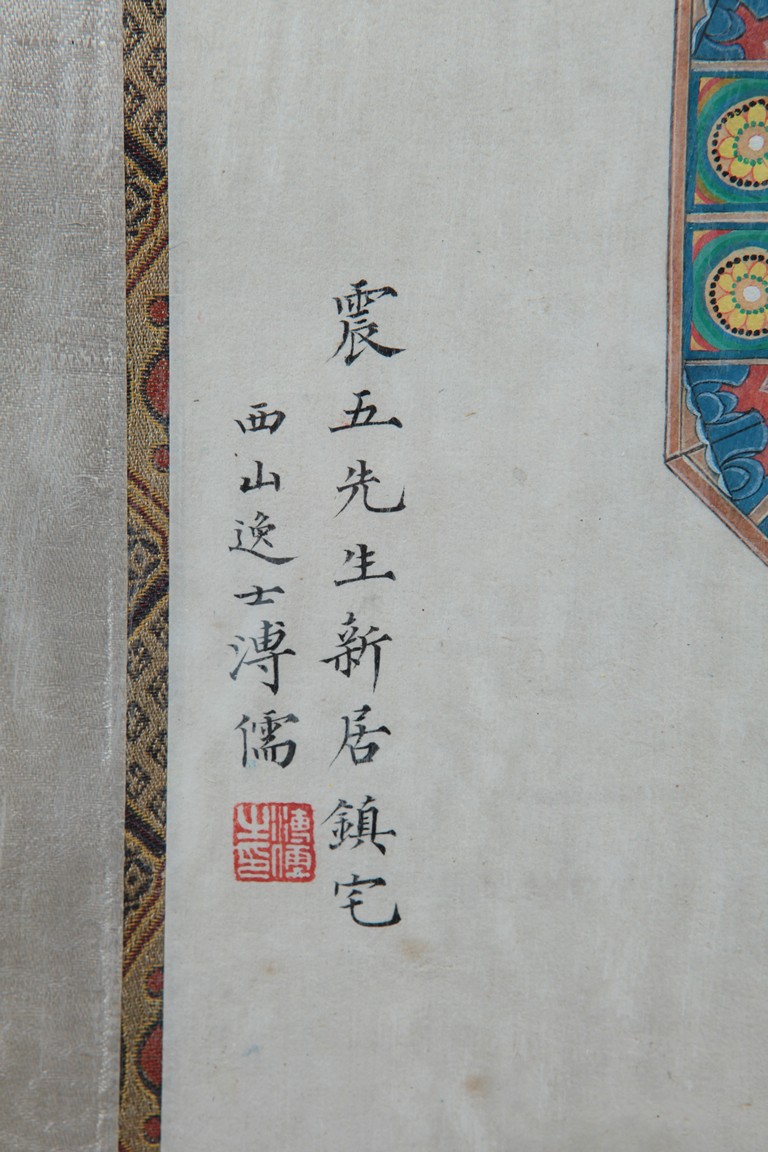 震五先生新居鎮宅
西山逸士溥儒
溥儒之印